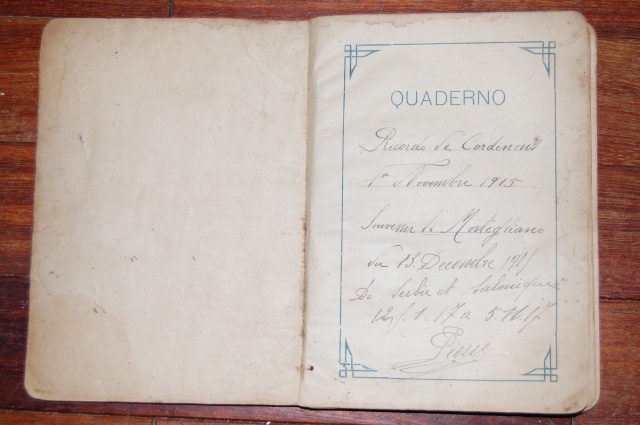 QUADERNO
Ricordo de Cordenons
1er Novembre 1915
Souvenir de Mortegliano
du 13 Decembre 1915
De Serbie et Salonique
1. 17 a 5.11.17